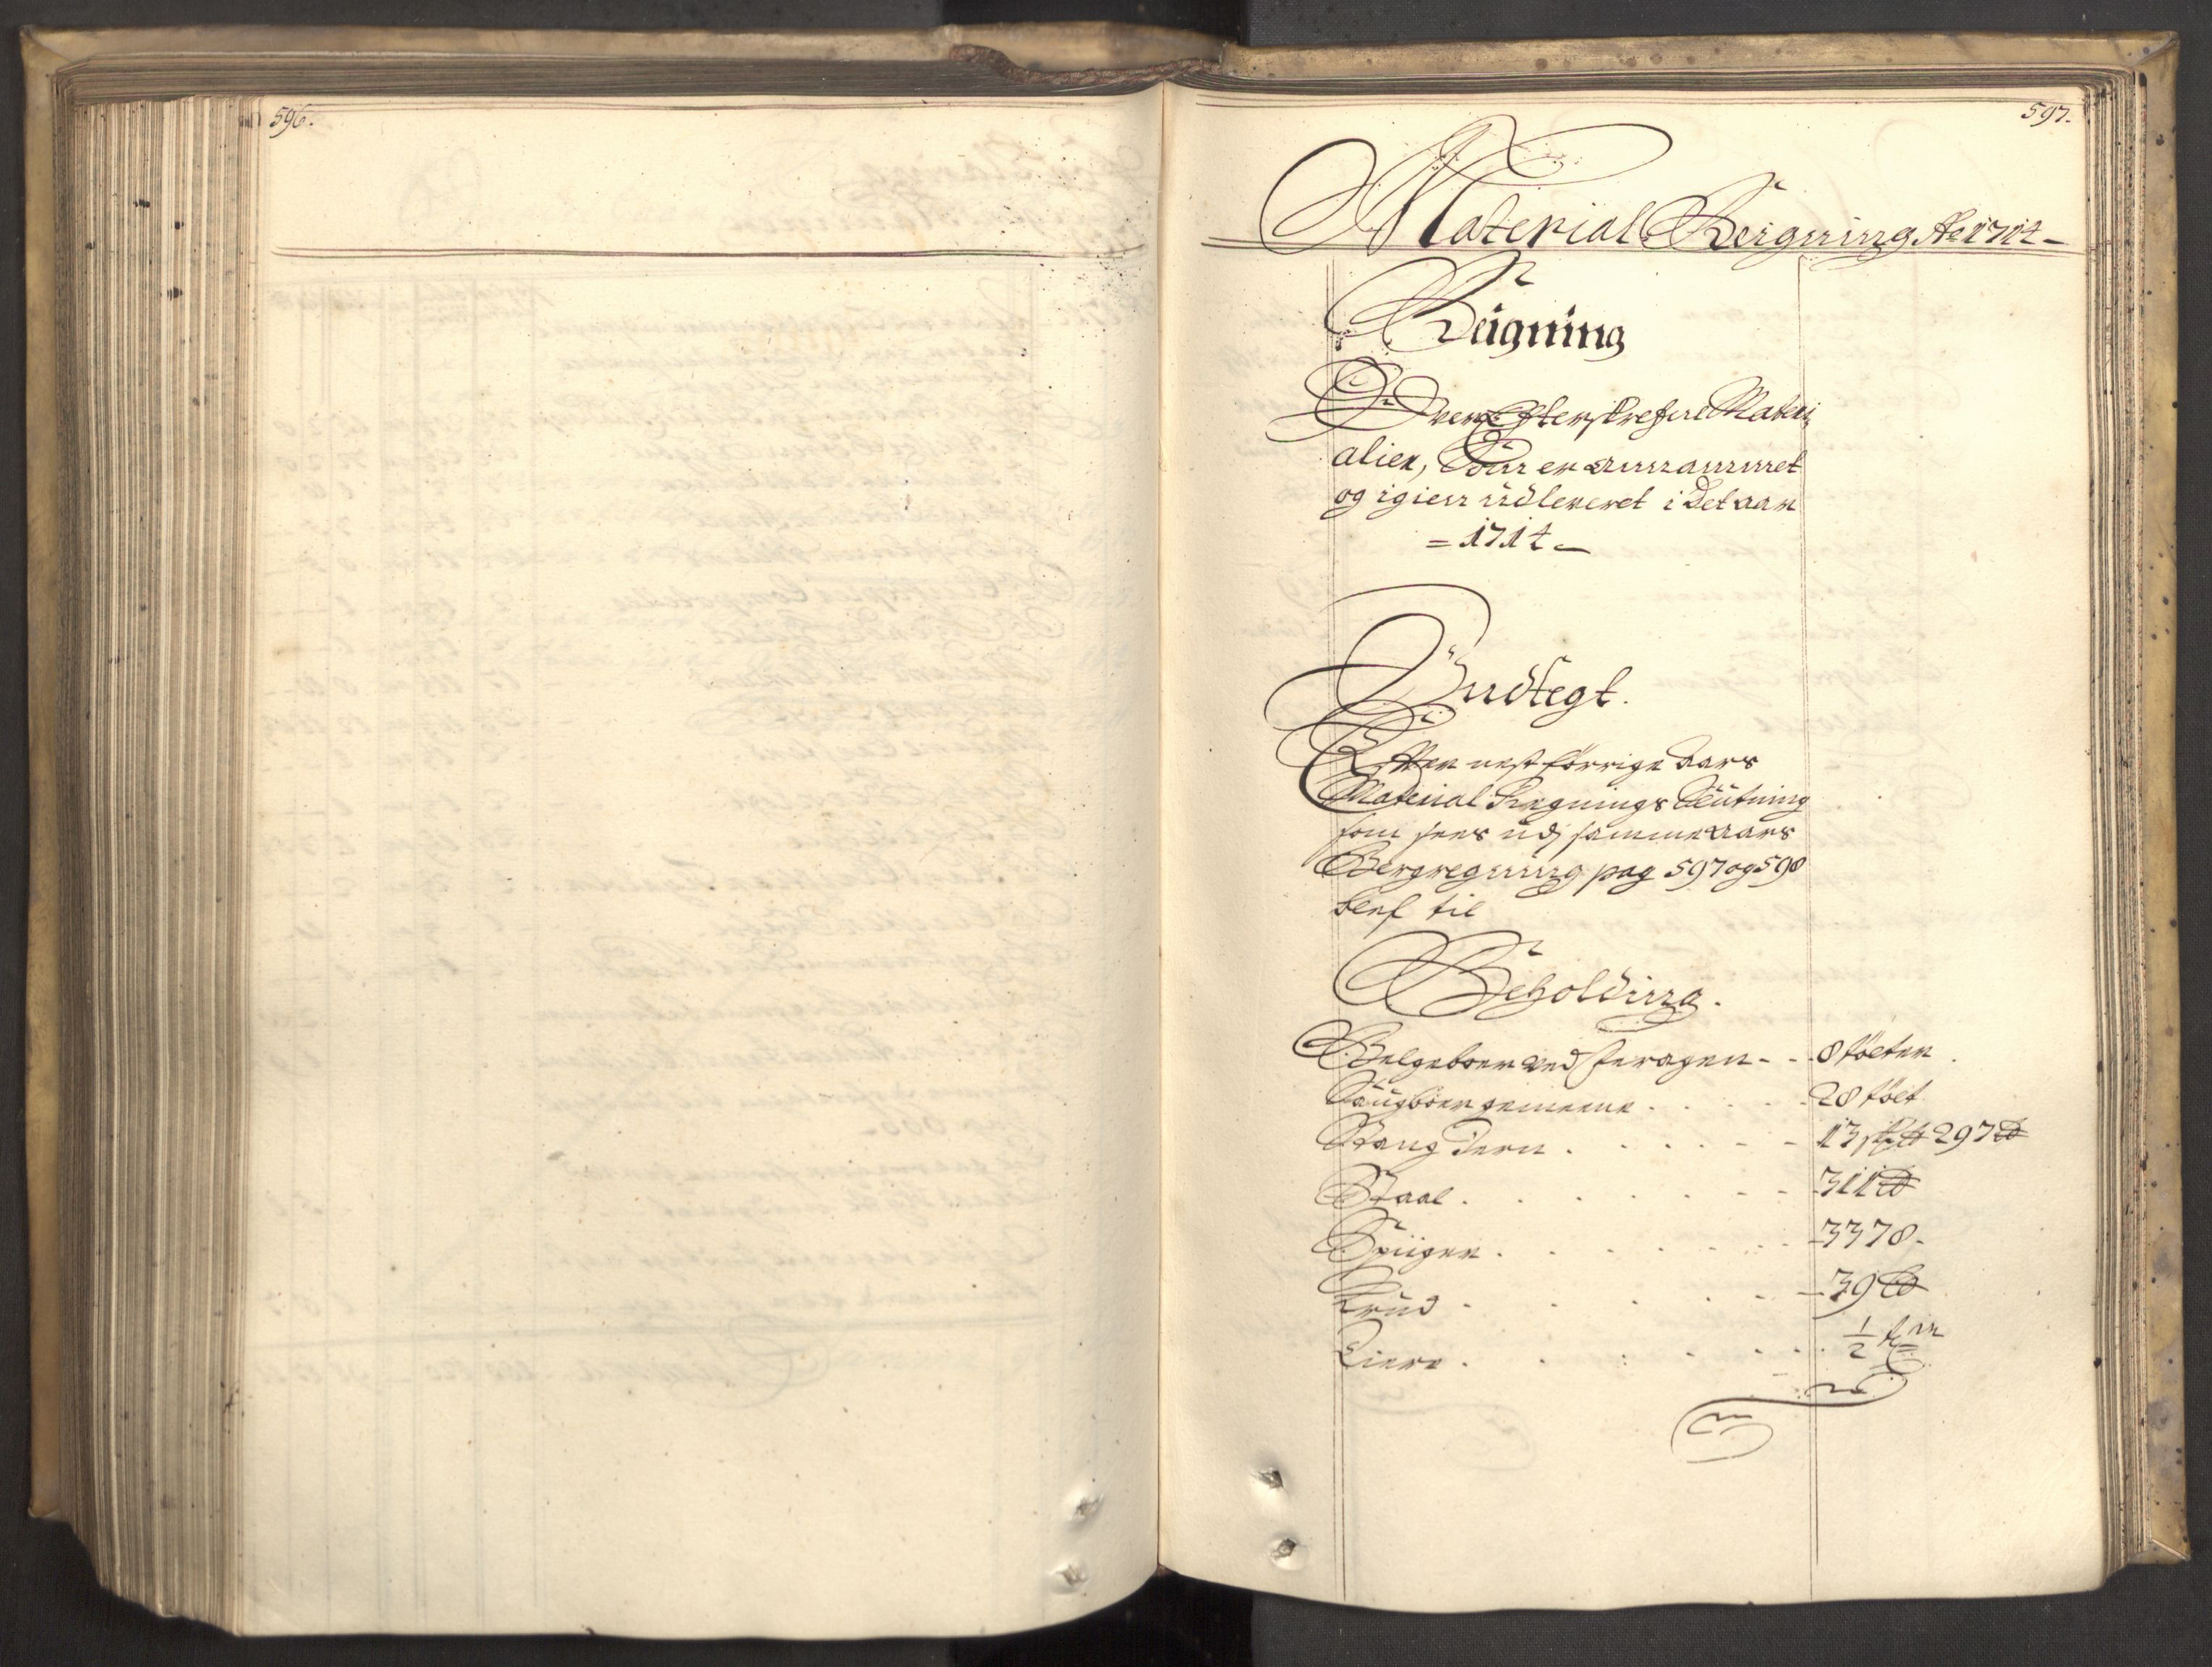 596.
597.
Material Reigning Ao 1714
Reigning
Over Efterskrefne Materi
alier, Som er annammet
og igien udleveret i Det aar
= 1714 —
Indtegt.
Efter nest forrige Aars
Material Regnings Slutning
som sees udj samme aars
Bergregning pag 597 og 598
blef til
Beholding.
Belgeboer - - - 8 tolter
Saugboer gemeene . . . - 20 tolt
Stang Jern . . . . - - 13 297 ℔
Staal . . . . - - - 311 ℔
Spiiger . . . . . - 3378.
Krud - . . . - - - 39 ℔
Tiere . . . - . . 1/2